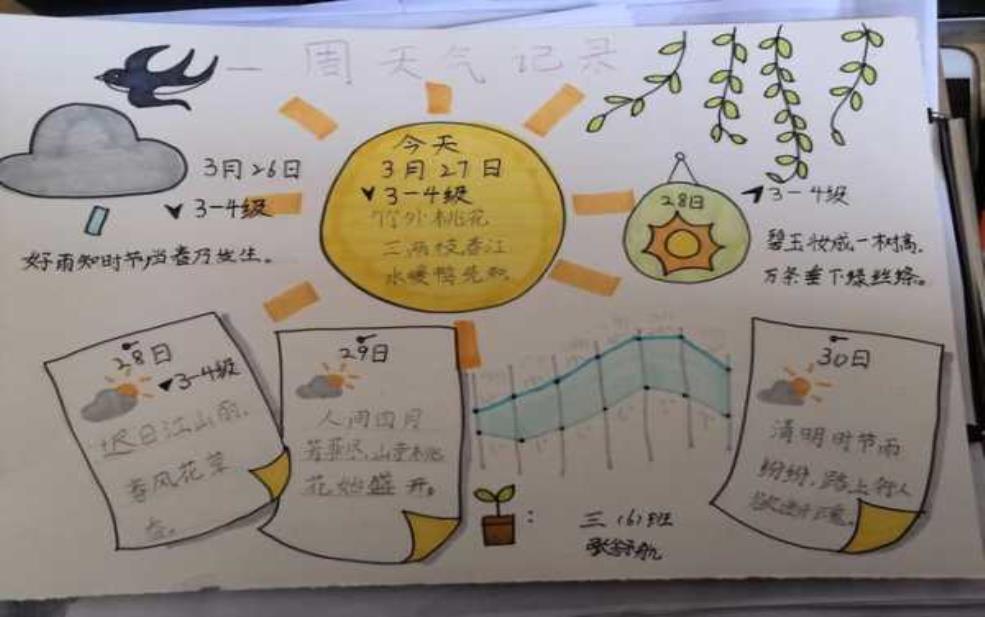 一周天气记录
3月26日
3-4级
好雨知时节当春乃发生。
今天
3月27日
3-4级
竹外桃花
三两枝春江
水暖鸭先知
28日
3-4级
碧玉妆成一树高,
万条垂下绿丝绦。
28日
3-4级
迟日江山丽,
春风花草
香。
29日
人间四月
芳菲尽,山寺桃
花始盛开。
30日
清明时节雨
纷纷,路上行人
三(6)班